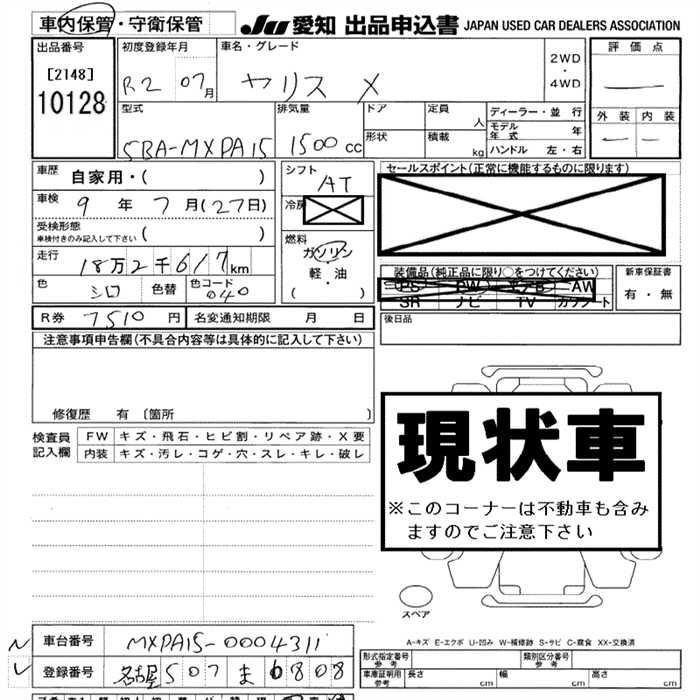 車内保管・守衛保管
JU 愛知 出品申込書 JAPAN USED CAR DEALERS ASSOCIATION
出品番号
[2148]
10128
初度登録年月
R2 07月
車名・グレード
ヤリス X
2WD
・
4WD
評価点
外装 内装
型式
5BA-MXPA15
排気量
1500cc
ドア
形状
定員 人
積載 kg
ディーラー・並行
モデル年式 年
ハンドル 左・右
車歴
自家用・( )
車検 9年7月(27日)
受検形態
車検付きのみ記入して下さい ( )
走行 18万2千617km
色 シロ 色替 色コード 040
シフト
AT
冷房
燃料
ガソリン
軽・油
( )
セールスポイント(正常に機能するものに限ります)
装備品(純正品に限り○をつけてください)
PS PW エアB AW
SR ナビ TV カワシート
新車保証書
有・無
R券 7510円 名変通知期限 月 日
後日品
注意事項申告欄(不具合内容等は具体的に記入して下さい)
修復歴 有〔箇所 〕
検査員記入欄
FW キズ・飛石・ヒビ割・リペア跡・X要
内装 キズ・汚レ・コゲ・穴・スレ・キレ・破レ
現状車
※このコーナーは不動車も含み
ますのでご注意下さい
スペア
A-キズ E-エクボ U-凹み W-補修跡 S-サビ C-腐食 XX-交換済
車台番号 MXPA15-0004311
登録番号 名古屋 507 ま 6808
形式指定番号
参考
類別区分番号
参考
車庫証明用
参考
長さ 幅 高さ